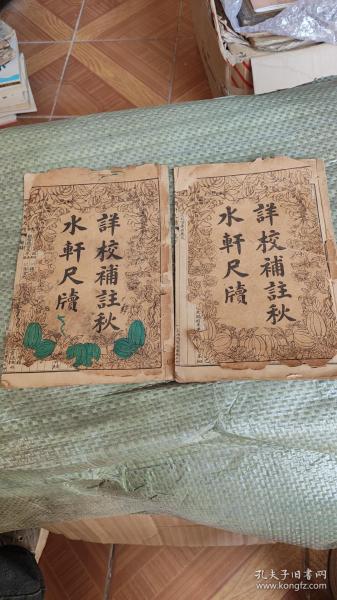 詳校補註秋
水軒尺牘
詳校補註秋
水軒尺牘
孔夫子旧书网
www.kongfz.com